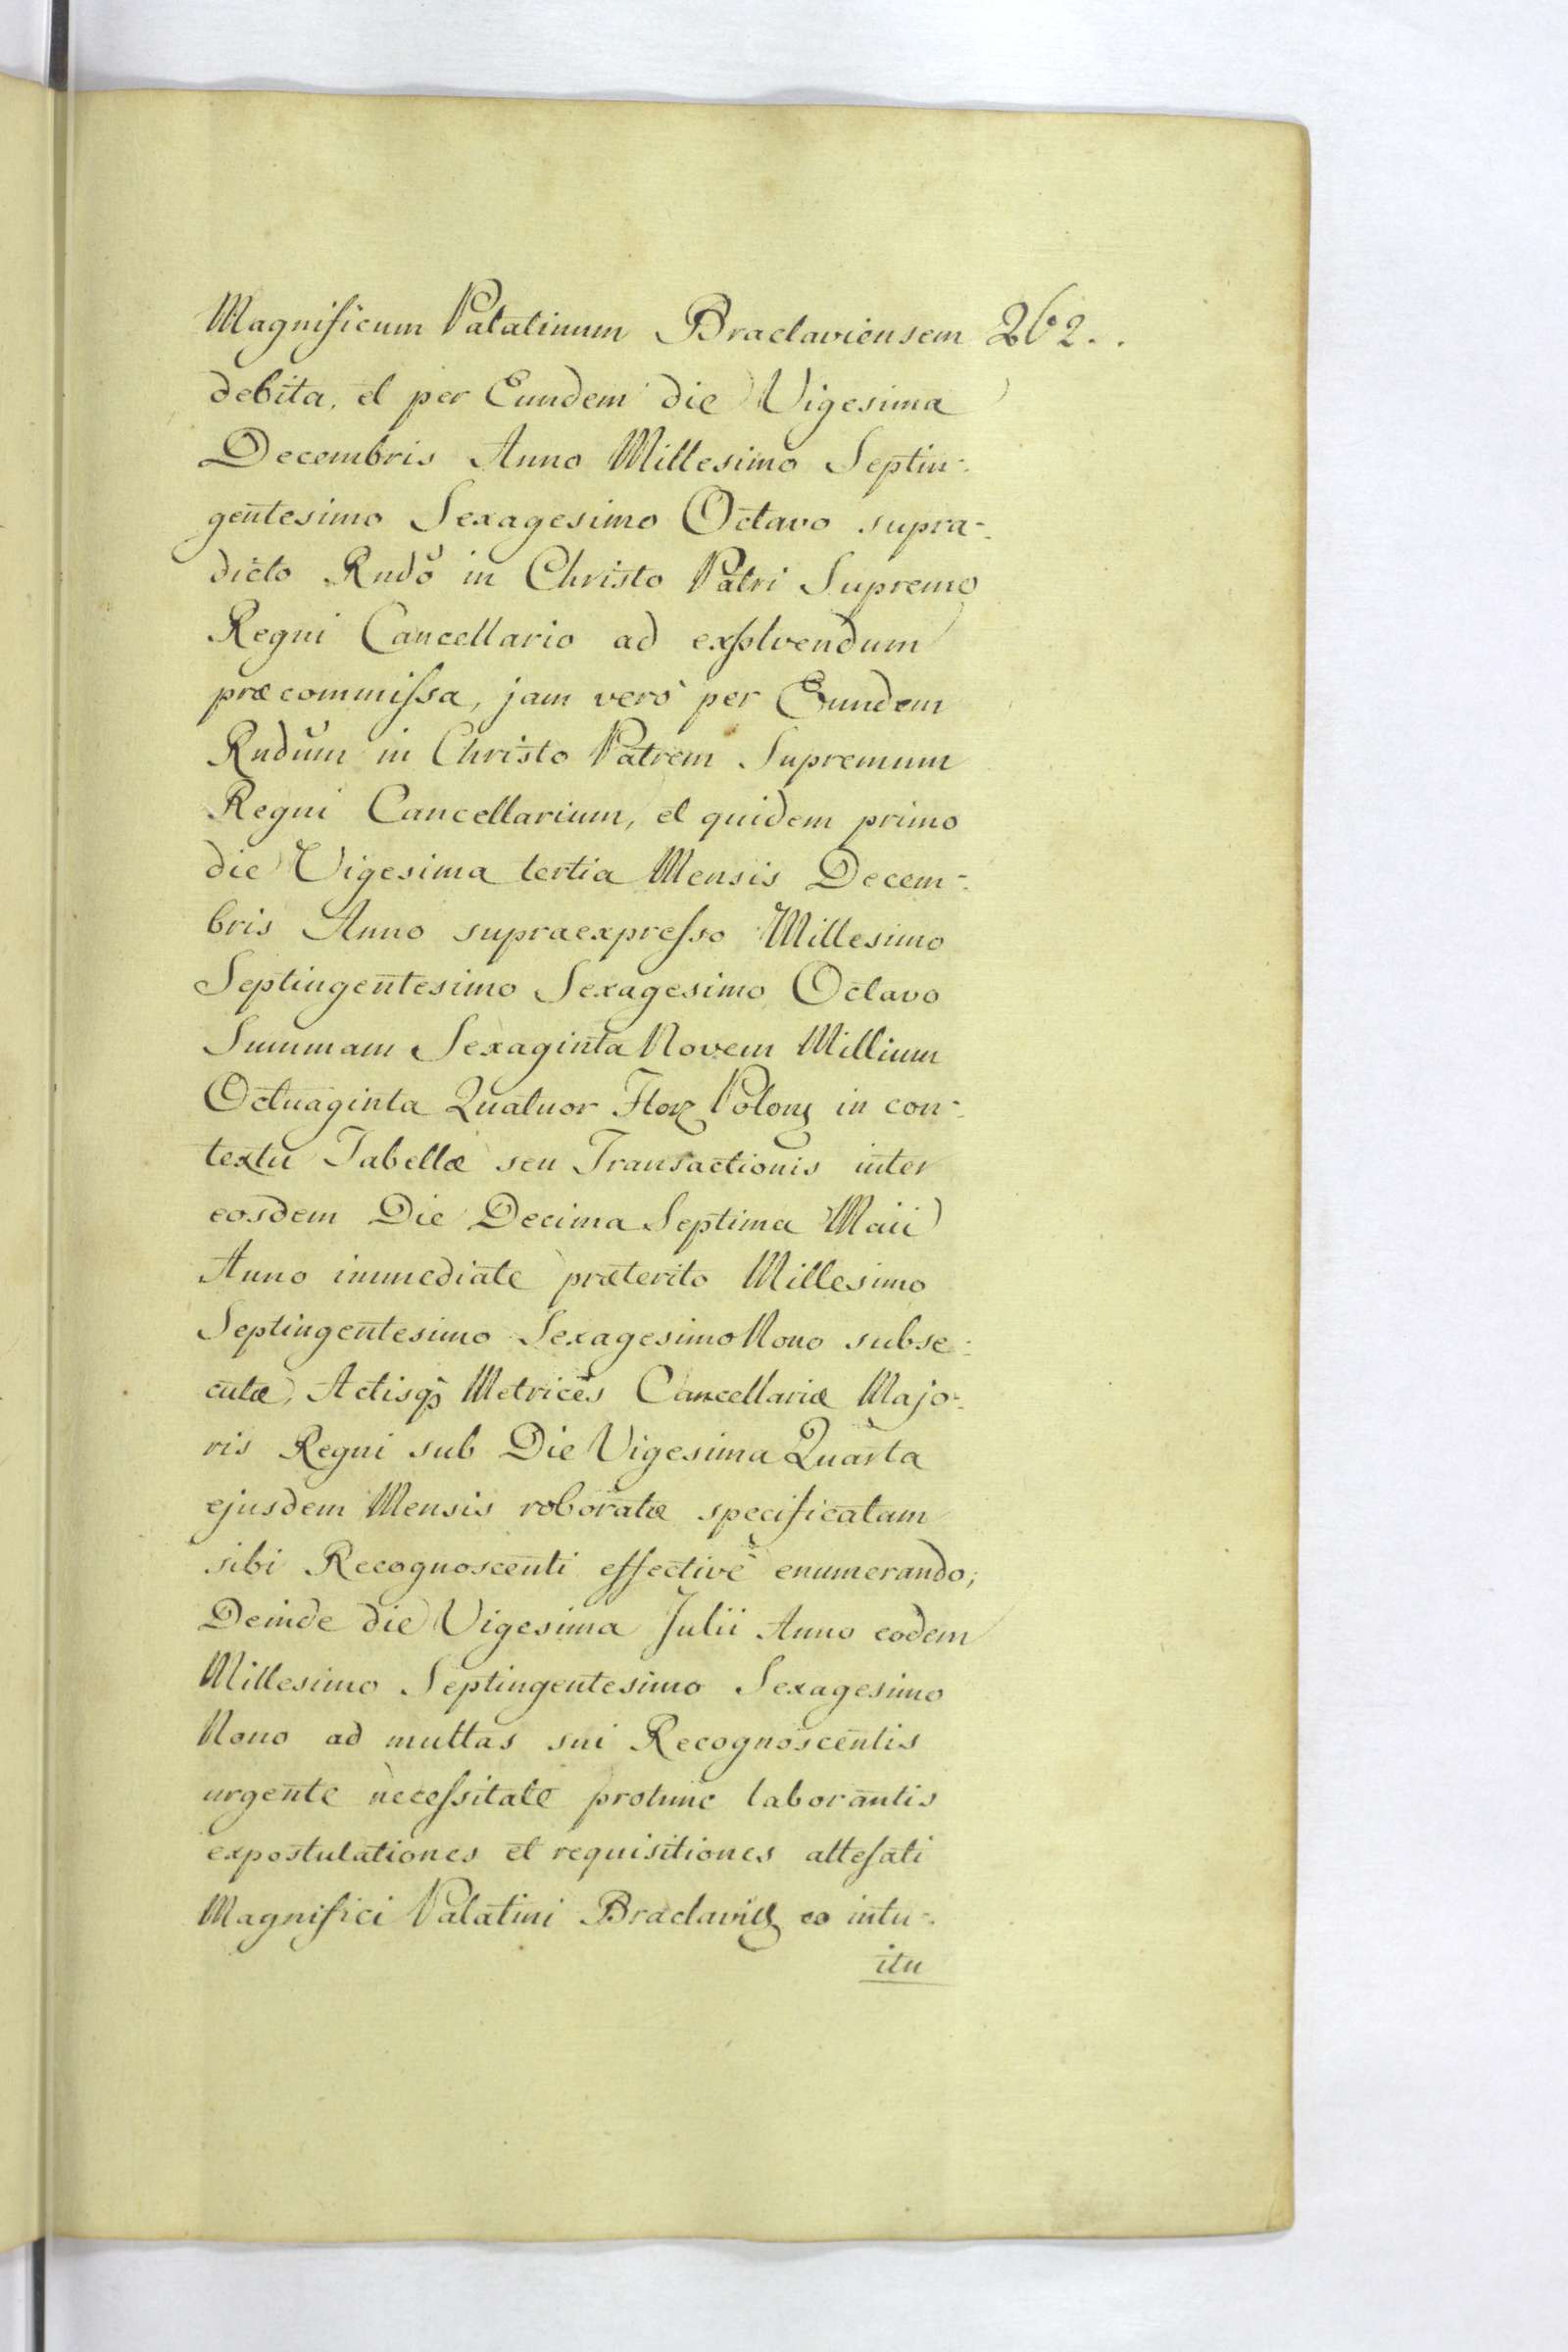 Magnificum Palatinum Braclaviensem 262..
debita, et per Eundem die Vigesima
Decembris Anno Millesimo Septin-
gentesimo Sexagesimo Octavo supra-
dicto Rndo in Christo Patri Supremo
Regni Cancellario ad exsolvendum
præcommissa, jam verò per Eundem
Rndum in Christo Patrem Supremum
Regni Cancellarium, et quidem primo
die Vigesima tertia Mensis Decem-
bris Anno supraexpresso Millesimo
Septingentesimo Sexagesimo Octavo
Summam Sexaginta Novem Millium
Octuaginta Quatuor Flor Polon in con-
textu Tabellæ seu Transactionis inter
eosdem Die Decima Septima Maii
Anno immediate præterito Millesimo
Septingentesimo Sexagesimo Nono subse-
cutæ, Actisq Metrices Cancellariæ Majo-
ris Regni sub Die Vigesima Quarta
ejusdem Mensis roboratæ specificatam
sibi Recognoscenti effectivè enumerando;
Deinde die Vigesima Julii Anno eodem
Millesimo Septingentesimo Sexagesimo
Nono ad multas sui Recognoscentis
urgente necessitate protunc laborantis
expostulationes et requisitiones attefati
Magnifici Palatini Braclavien eo intu-
itu